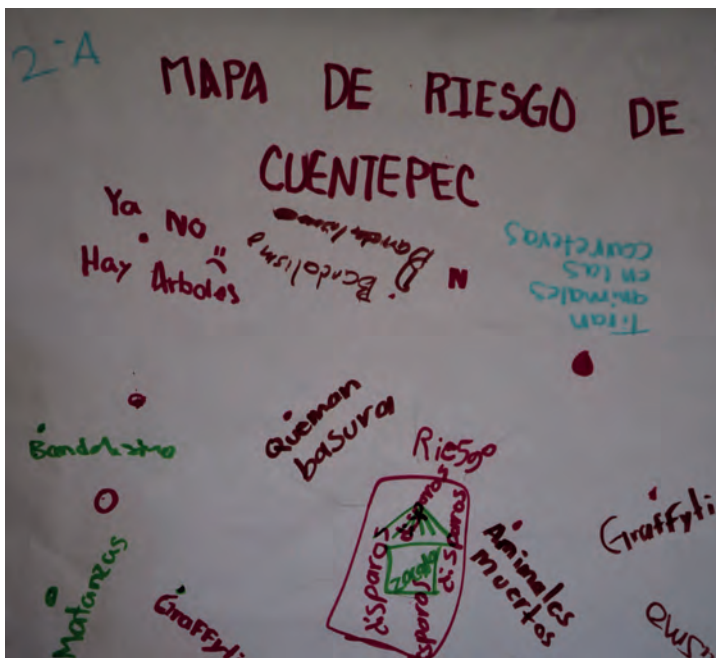 2-A
MAPA DE RIESGO DE
CUENTEPEC
Ya NO
Hay Arboles
Bandalismo
N
Tiran
animales
en las
carreteras
Bandalismo
Queman
basura
Riesgo
disparos
disparos
disparos
disparos
Animales
muertos
Graffyti
Matanzas
Graffyti